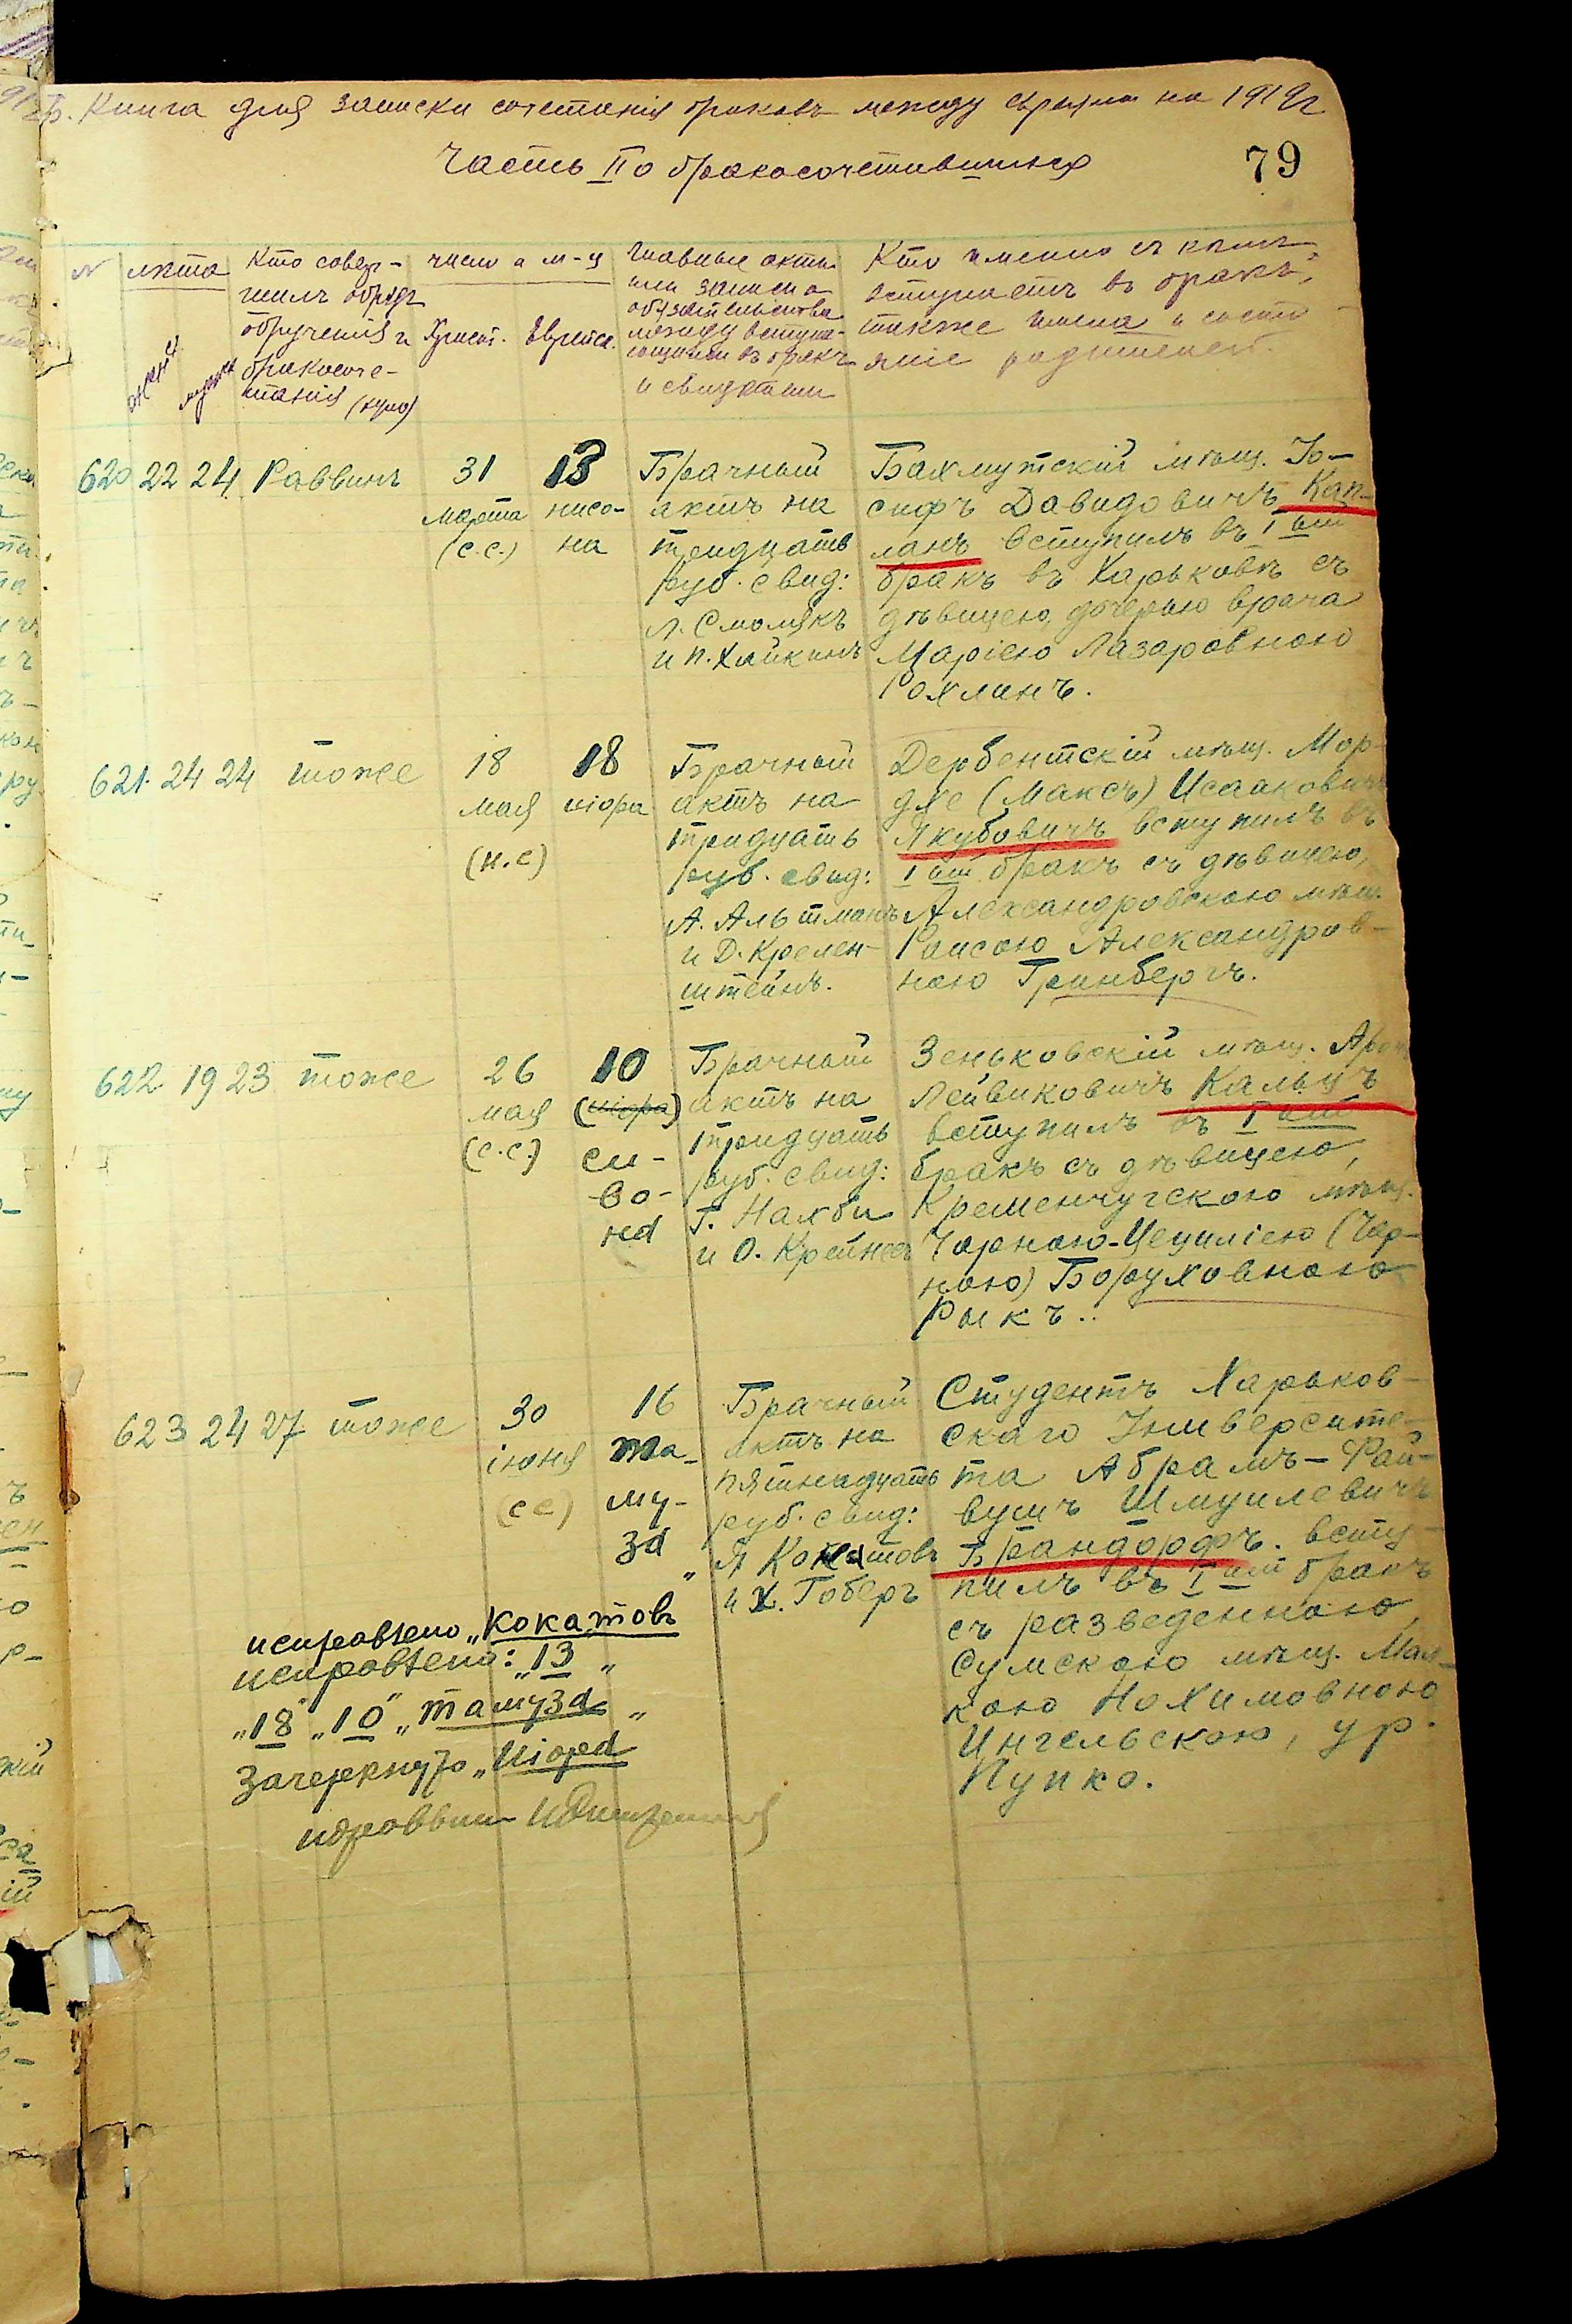 Книга для записки сочетанія браковъ между евреями на 1919 г
Часть II о бракосочетавшихся
79
№ лѣта
жены мужа
Кто совер-
шилъ обрядъ
обрученія и
бракосоче-
танія
число и м-ц
Христ. Еврейск.
Главные акты
или записи о
обязательствѣ
между вступа-
ющими въ бракъ
и свидѣтели
Кто именно съ кѣмъ
вступаетъ въ бракъ,
также имена и состо
яніе родителей.
620 22 24 Раввинъ
31
марта
(с.с.)
13
ниса-
на
Брачный
актъ на
тридцать
руб. свид:
Л. Смолякъ
и П. Хайкинъ
Бахмутскій мѣщ. Іо-
сифъ Давидовичъ Кап-
ланъ вступилъ въ I ый
бракъ въ Харьковѣ съ
дѣвицею, дочерью врача
Маріею Лазаровною
Рохлинъ.
621 24 24 тоже
18
мая
(н.с)
18
ніора
Брачный
актъ на
тридцать
руб. свид:
А. Альтманъ
и Д. Крелен-
штейнъ.
Дербентскій мѣщ. Мор-
дхе (Максъ) Исааковичъ
Якубовичъ вступилъ въ
I ый бракъ съ дѣвицею,
Александровскою мѣщ.
Раисою Александров-
ною Гринбергъ.
622 19 23 тоже
26
мая
(с.с.)
10
(ніора)
си-
во-
на
Брачный
актъ на
тридцать
руб. свид:
Г. Нахби
и О. Крейнес
Зеньковскій мѣщ. Арон
Лейвиковичъ Кальцъ
вступилъ въ I ый
бракъ съ дѣвицею,
Кременчугскою мѣщ.
Чарною-Цециліею (Чер-
ною) Боруховною
Рыкъ..
623 24 27 тоже
30
іюня
(сс)
16
та-
му-
за
Брачный
актъ на
пятнадцать
руб. свид:
Я Кокатовъ
и Х. Гоберъ
Студентъ Харьков-
скаго Университе-
та Абрамъ-Фай-
вушъ Шмуилевичъ
Брандорфъ. всту-
пилъ въ I ый бракъ
съ разведенною,
Сумскою мѣщ. Мал-
кою Нохимовною
Ингельскою, ур.
Пупко.
исправлено „Кокатовъ
исправлено: „13„
„18" „10" „тамуза„
Зачеркнуто „Ніора